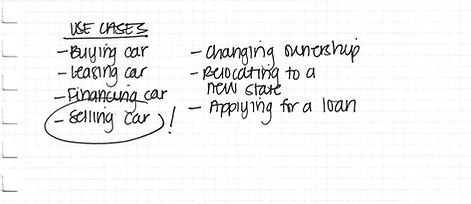 USE CASES
- Buying car
- Leasing car
- Financing car
- Selling car !
- Changing ownership
- Relocating to a
new state
- Applying for a loan